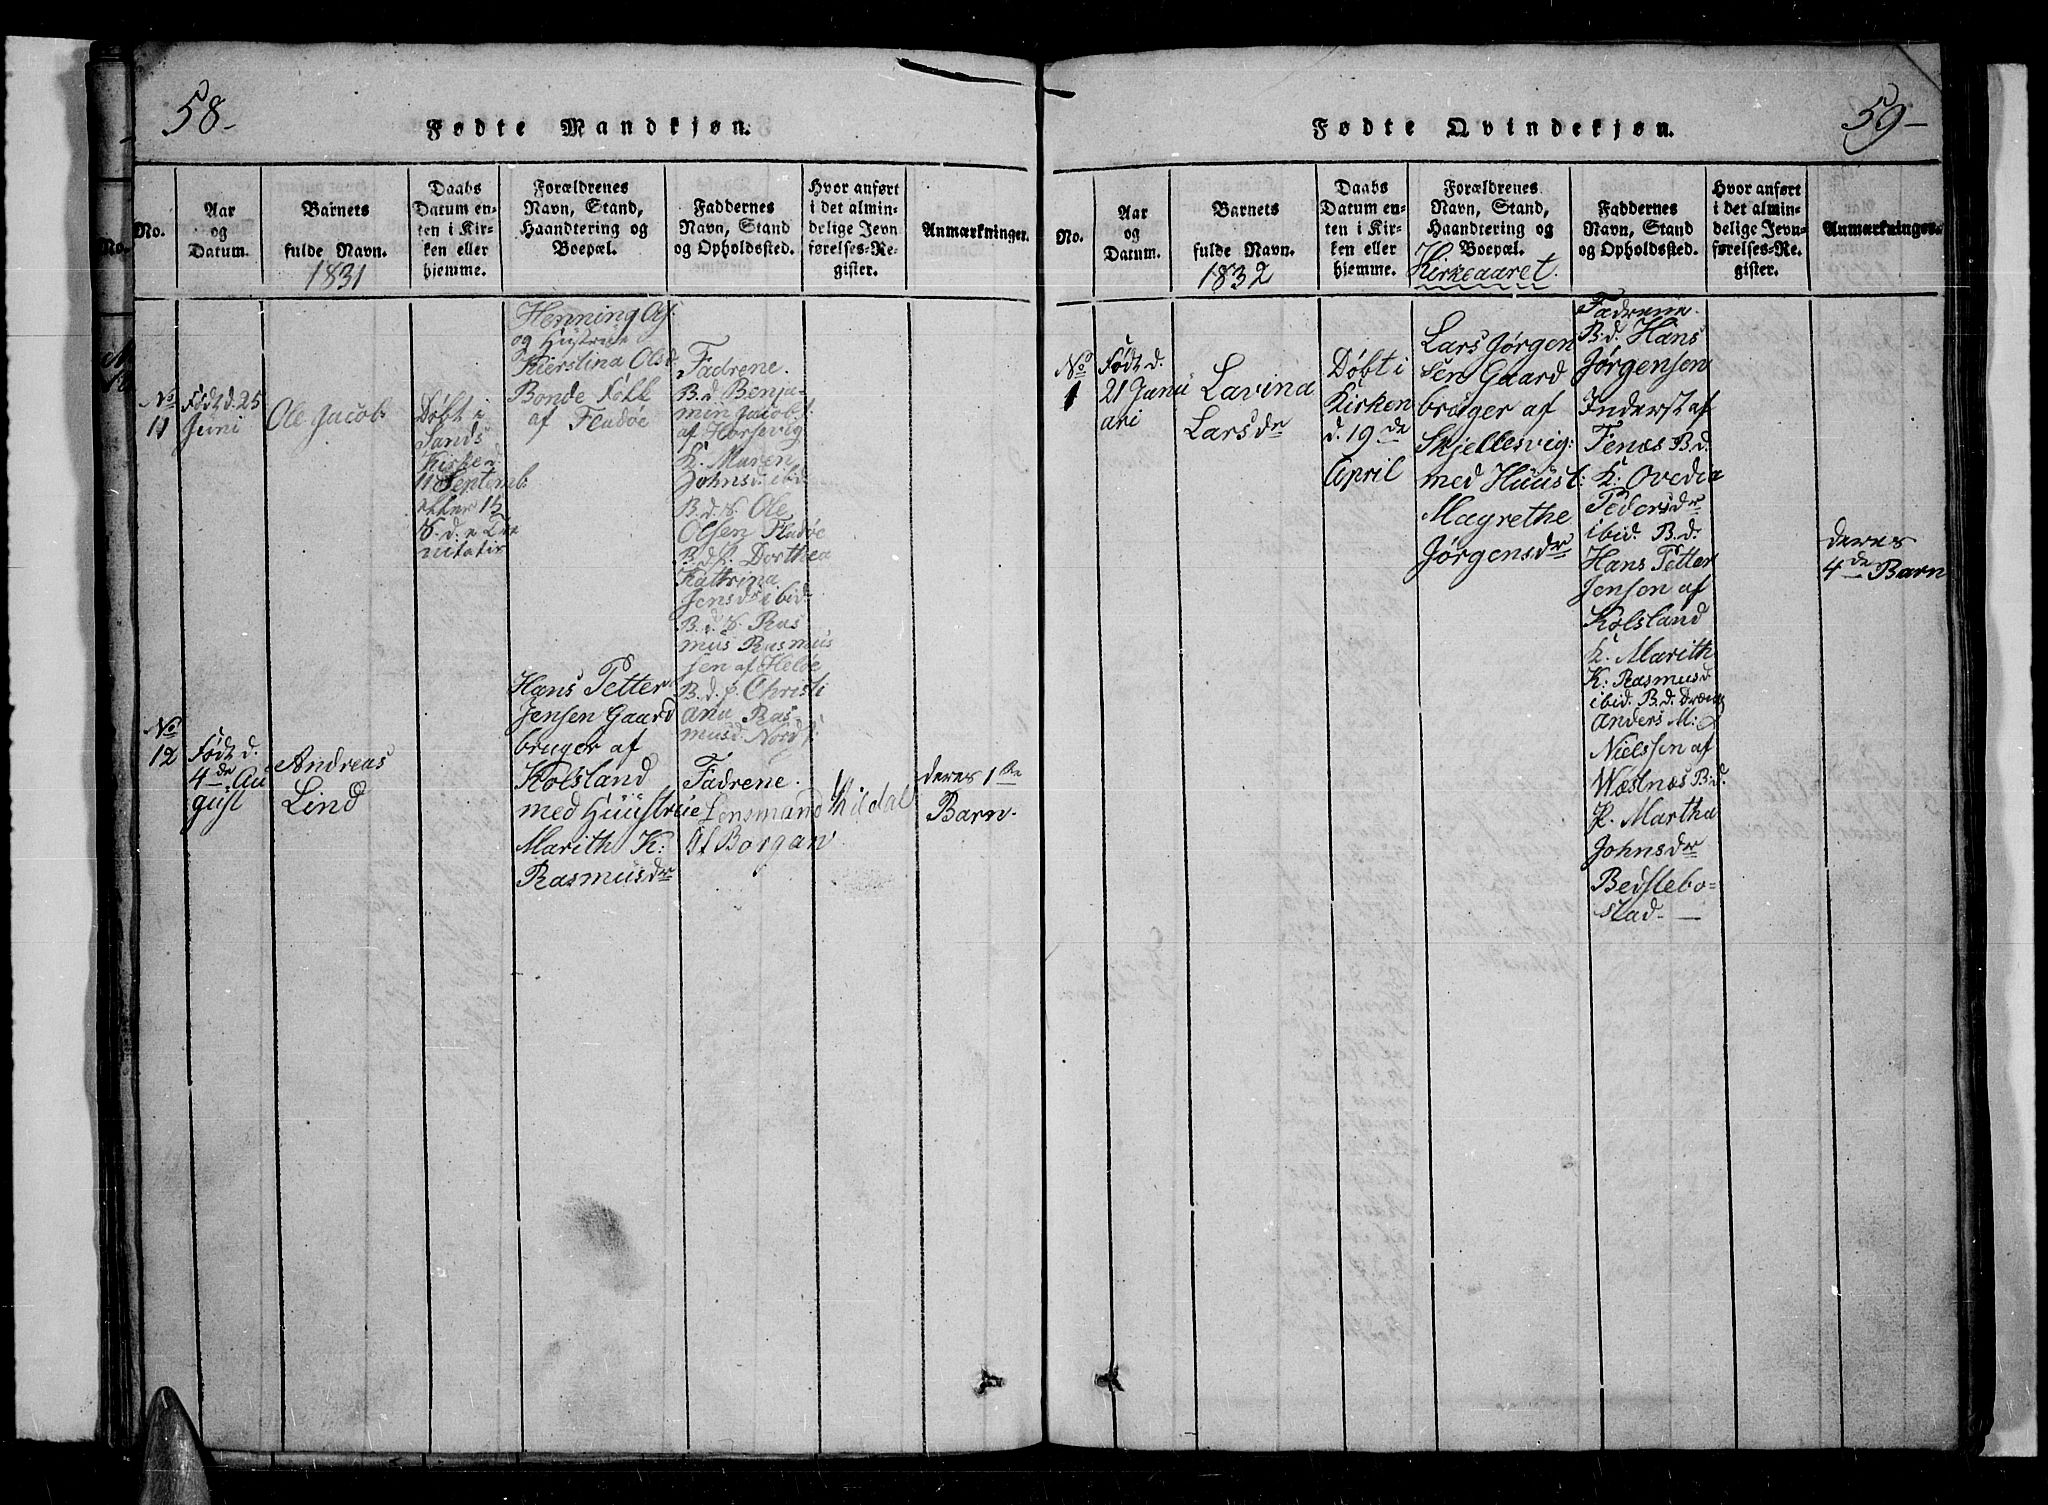 58-
Fødte Mandkjøn.
No.
Aar
og
Datum.
Barnets
fulde Navn.
1831
Daabs
Datum en-
ten i Kir-
ken eller
hjemme.
Forældrenes
Navn, Stand,
Haandtering og
Boepæl.
Faddernes
Navn, Stand
og Opholdssted.
Hvor anført
i det almin-
delige Jevn
førelses-Re-
gister.
Anmærkninger.
No
11
Født d. 25
Juni
Ole Jacob
Døbt i
Sands
Kirke d
11 Septemb.
Henning
og Hustrue
Kierstina Olsd
Bonde
af Fladøe
Fadrene.
B.d. Benja-
min Jacobs
af Horsevig
K. Maren
Johnsd. ibid.
B.d. Ole
Olsen Fladøe
B.d. P. Dorthea
Kattrina
Jensdr ibid
B.d. Ras
mus Rasmus
sen af Heløe
B.d. P. Christi
ana Ras
musd. Nord
No
12
Født d.
4de Au
gust
Andreas
Lind
Hans Petter
Jensen Gaard
bruger af
Kolsland
med Huustrue
Marith K:
Rasmusdr
Fadrene.
Lensmand Kildal
af Borgan
deres 1ste
Barn.
59-
Fødte Qvindekjøn.
No.
Aar
og
Datum.
Barnets
fulde Navn.
1832
Daabs
Datum en-
ten i Kir-
ken eller
hjemme.
Forældrenes
Navn, Stand,
Haandtering og
Boepæl.
Kirkeaaret.
Faddernes
Navn, Stand
og Opholdssted.
Hvor anført
i det almin-
delige Jevn-
førelses-Re-
gister.
Anmærkninger.
No
1
Født d.
21 Janu
ari
Lavina
Larsdr
Døbt i
Kirken
d. 19de
April
Lars Jørgen
sen Gaard
bruger af
Skjellesvig:
med Huust:
Magrethe
Jørgensdr
Fadrene.
B.d. Hans
Jørgensen
Inderst af
Fenæs B.d.
K: Ovedia
Pedersdr
ibid. B.d.
Hans Petter
Jensen af
Kolsland
K. Marith
K: Rasmusd
ibid. B.d. Dræng
Anders M:
Nielssen af
Wæstnæs B.d.
P. Martha
Johnsdr
Bedstebo-
stad.
deres
4de Barn